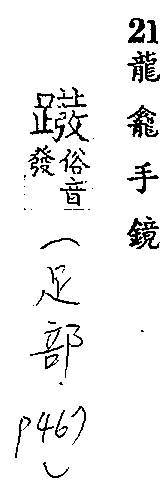 21龍龕手鏡
俗音
發
(足部.
p467)